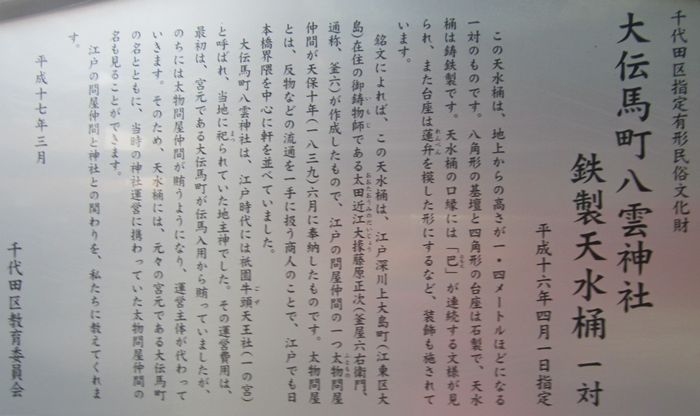 千代田区指定有形民俗文化財
大伝馬町八雲神社
鉄製天水桶 一対
平成十六年四月一日指定
この天水桶は、地上からの高さが一・四メートルほどになる
一対のものです。八角形の基壇と四角形の台座は石製で、天水
桶は鋳鉄製です。天水桶の口縁には「巴」が連続する文様が見
られ、また台座は蓮弁を模した形にするなど、装飾も施されて
います。
銘文によれば、この天水桶は、江戸深川上大島町(江東区大
島)在住の御鋳物師である太田近江大掾藤原正次(釜屋六右衛門、
通称、釜六)が作成したもので、江戸の問屋仲間の一つ太物問屋
仲間が天保十年(一八三九)六月に奉納したものです。太物問屋
とは、反物などの流通を一手に扱う商人のことで、江戸でも日
本橋界隈を中心に軒を並べていました。
大伝馬町八雲神社は、江戸時代には祇園牛頭天王社(一の宮)
と呼ばれ、当地に祀られていた地主神でした。その運営費用は、
最初は、宮元である大伝馬町が伝馬入用から賄っていましたが、
のちには太物問屋仲間が賄うようになり、運営主体が代わって
いきます。そのため、天水桶には、元々の宮元である大伝馬町
の名とともに、当時の神社運営に携わっていた太物問屋仲間の
名も見ることができます。
江戸の問屋仲間と神社との関わりを、私たちに教えてくれま
す。
平成十七年三月
千代田区教育委員会